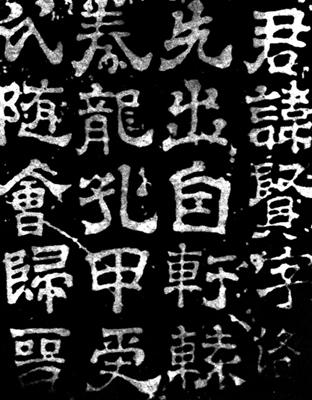 君諱賢字洛
先出自軒轅
豢龍孔甲受
氏随會歸